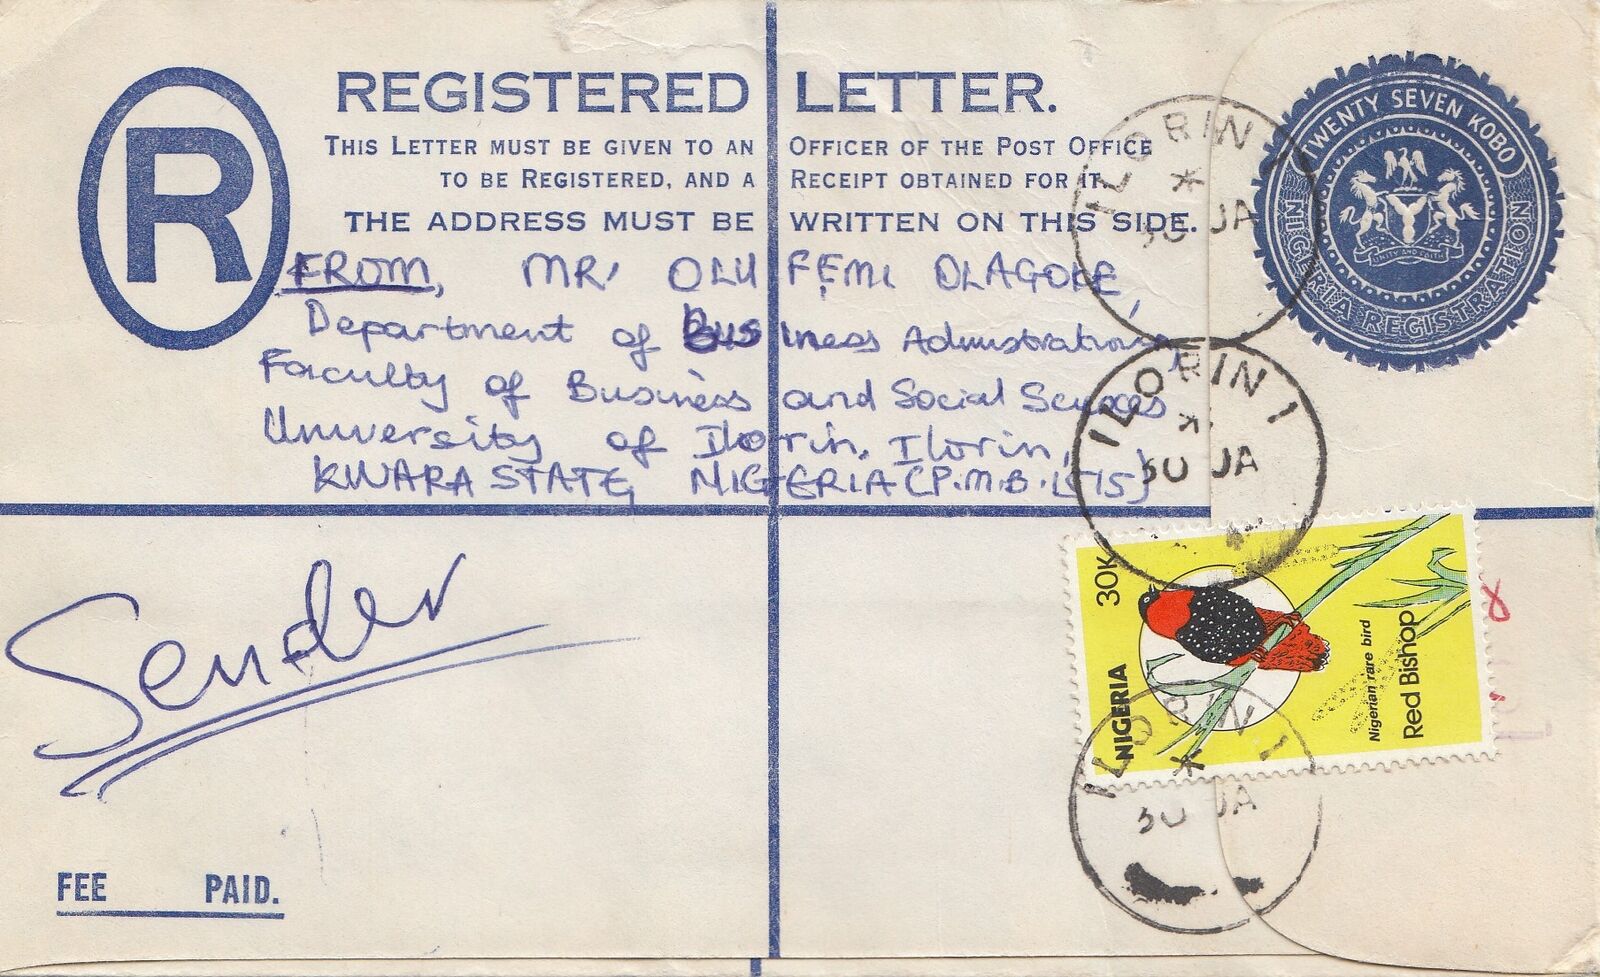 R
REGISTERED LETTER.
THIS LETTER MUST BE GIVEN TO AN OFFICER OF THE POST OFFICE
TO BE REGISTERED, AND A RECEIPT OBTAINED FOR IT.
THE ADDRESS MUST BE WRITTEN ON THIS SIDE.
TWENTY SEVEN KOBO
NIGERIA REGISTRATION
UNITY AND FAITH
ILORIN 1
30 JA
FROM, MR, OLU FEMI OLAGOKE,
Department of Business Admnstration,
Faculty of Business and Social Scences
University of Ilorin, Ilorin,
KWARA STATE, NIGERIA (P.M.B. 1515)
ILORIN 1
30 JA
30K
NIGERIA
Nigerian rare bird
Red Bishop
Sender
ILORIN 1
30 JA
FEE PAID.